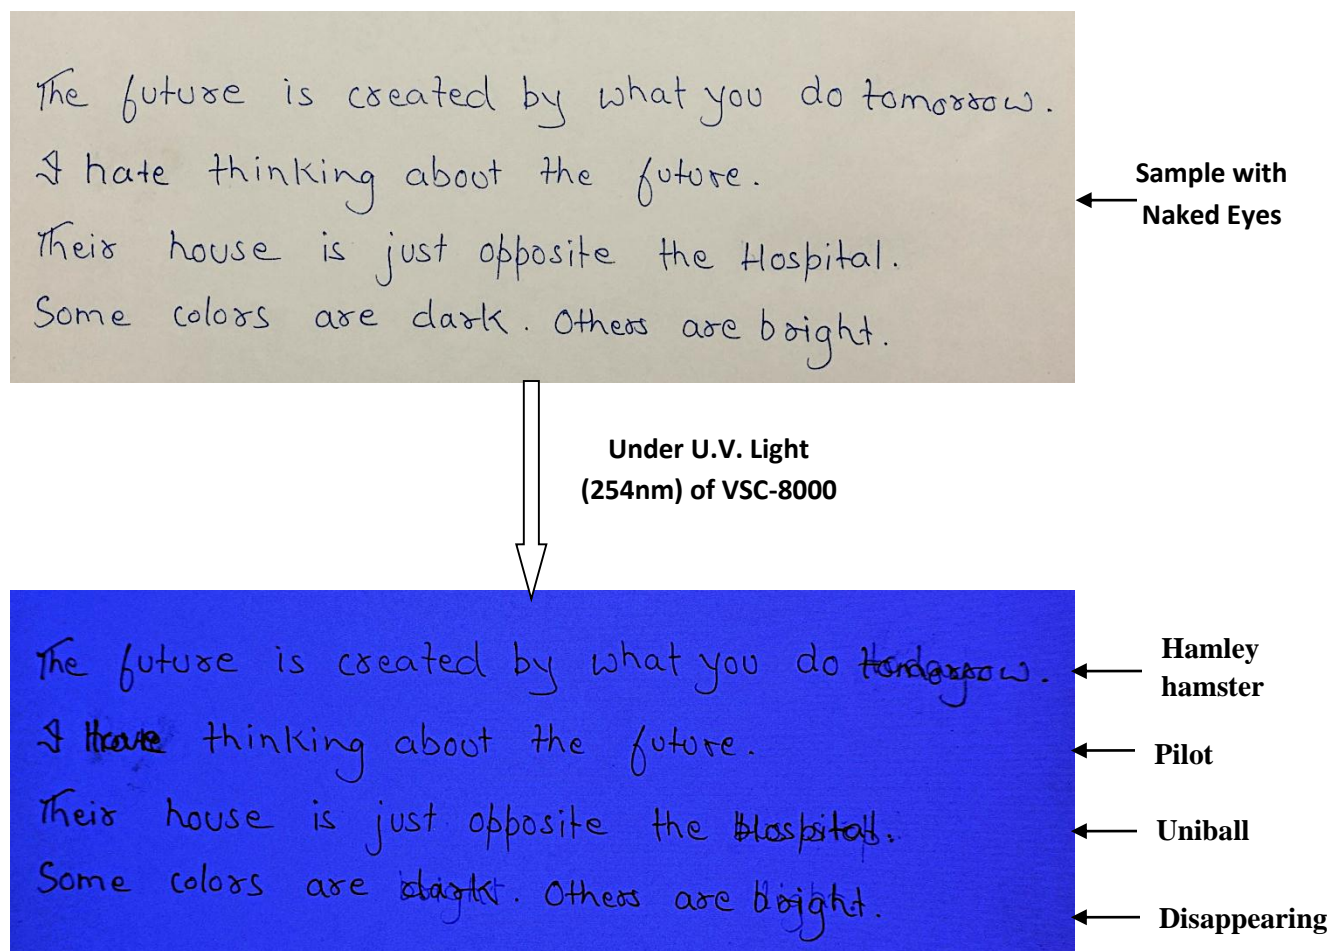 The future is created by what you do tomorrow.
I hate thinking about the future.
Their house is just opposite the Hospital.
Some colors are dark. Others are bright.
Sample with
Naked Eyes
Under U.V. Light
(254nm) of VSC-8000
The future is created by what you do tomorrow.
I thinking about the future.
Their house is just opposite the Hospital.
Some colors are dark. Others are bright.
Hamley
hamster
Pilot
Uniball
Disappearing